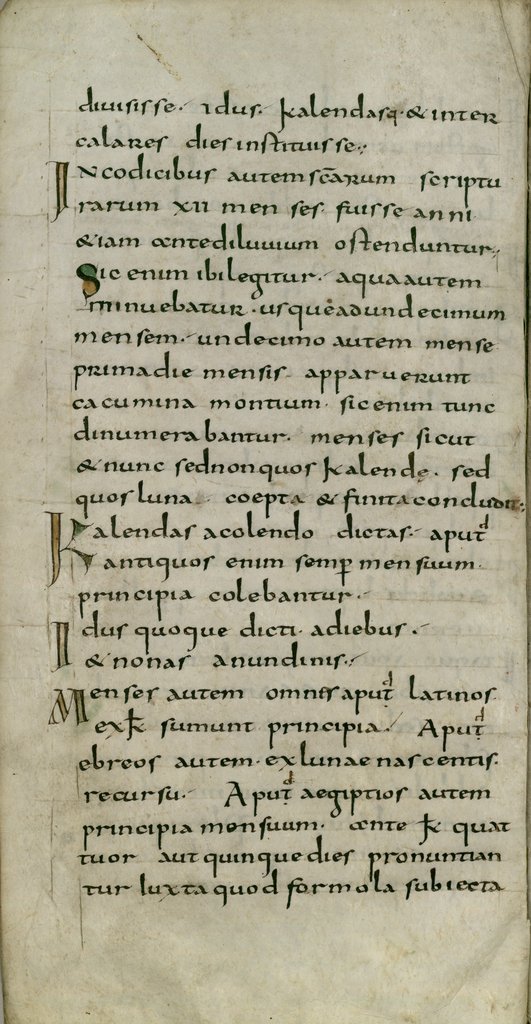 diuisisse. idus. kalendasq. & inter
calares dies instituisse.
In codicibus autem scarum scriptu
rarum xii menses. fuisse anni
& iam antediluuium ostenduntur.
Sic enim ibi legitur. aqua autem
minuebatur. usque ad undecimum
mensem. undecimo autem mense
prima die mensis apparuerunt
cacumina montium. sic enim tunc
dinumerabantur. menses sicut
& nunc sed non quos kalende. sed
quos luna. coepta & finita concludit.
Kalendas a colendo dictas. aput d
antiquos enim semp mensuum.
principia colebantur.
Idus quoque dicti. a diebus.
& nonas a nundinis.
Menses autem omnes aput d latinos
ex kl sumunt principia. Aput d
ebreos autem. ex lunae nascentis.
recursu. Aput d aegiptios autem
principia mensuum. ante kl quat
tuor aut quinque dies pronuntian
tur luxta quod formola subiecta